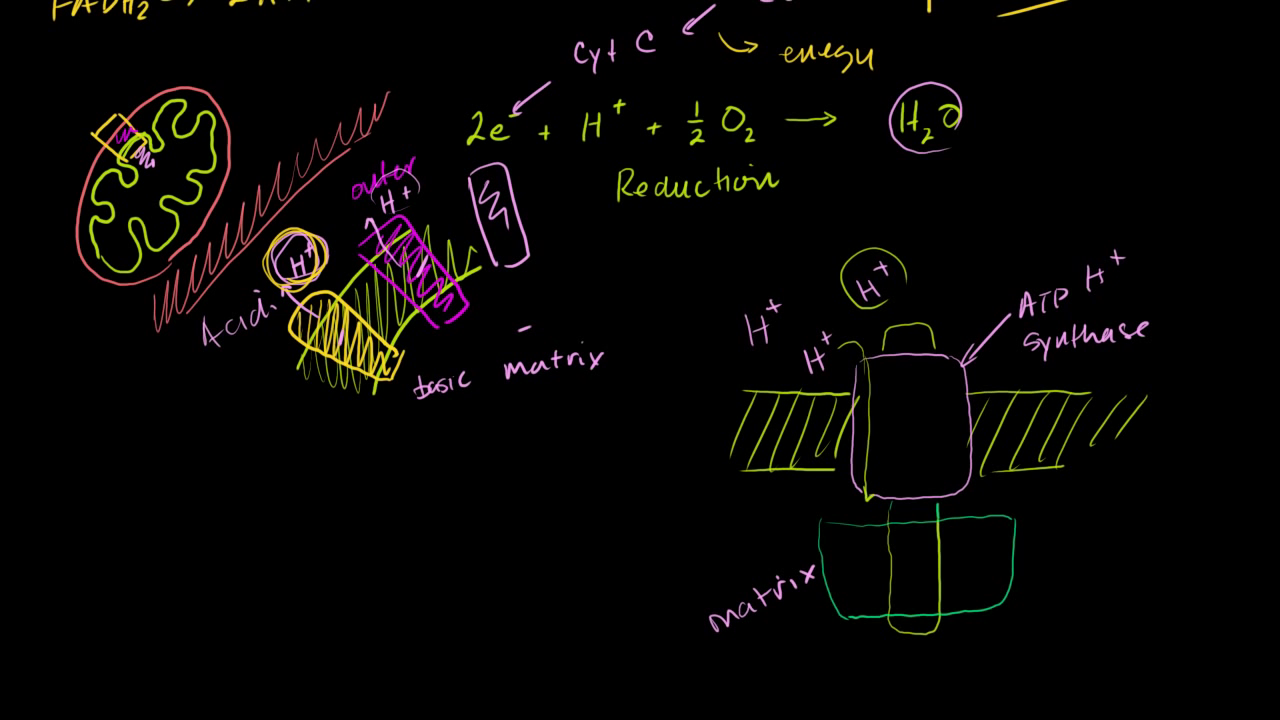 FADH2
Cyt C
energy
2e- + H+ + 1/2 O2 → H2O
Reduction
outer
H+
H+
Acidi
basic matrix
H+
H+
H+
ATP H+
Synthase
matrix